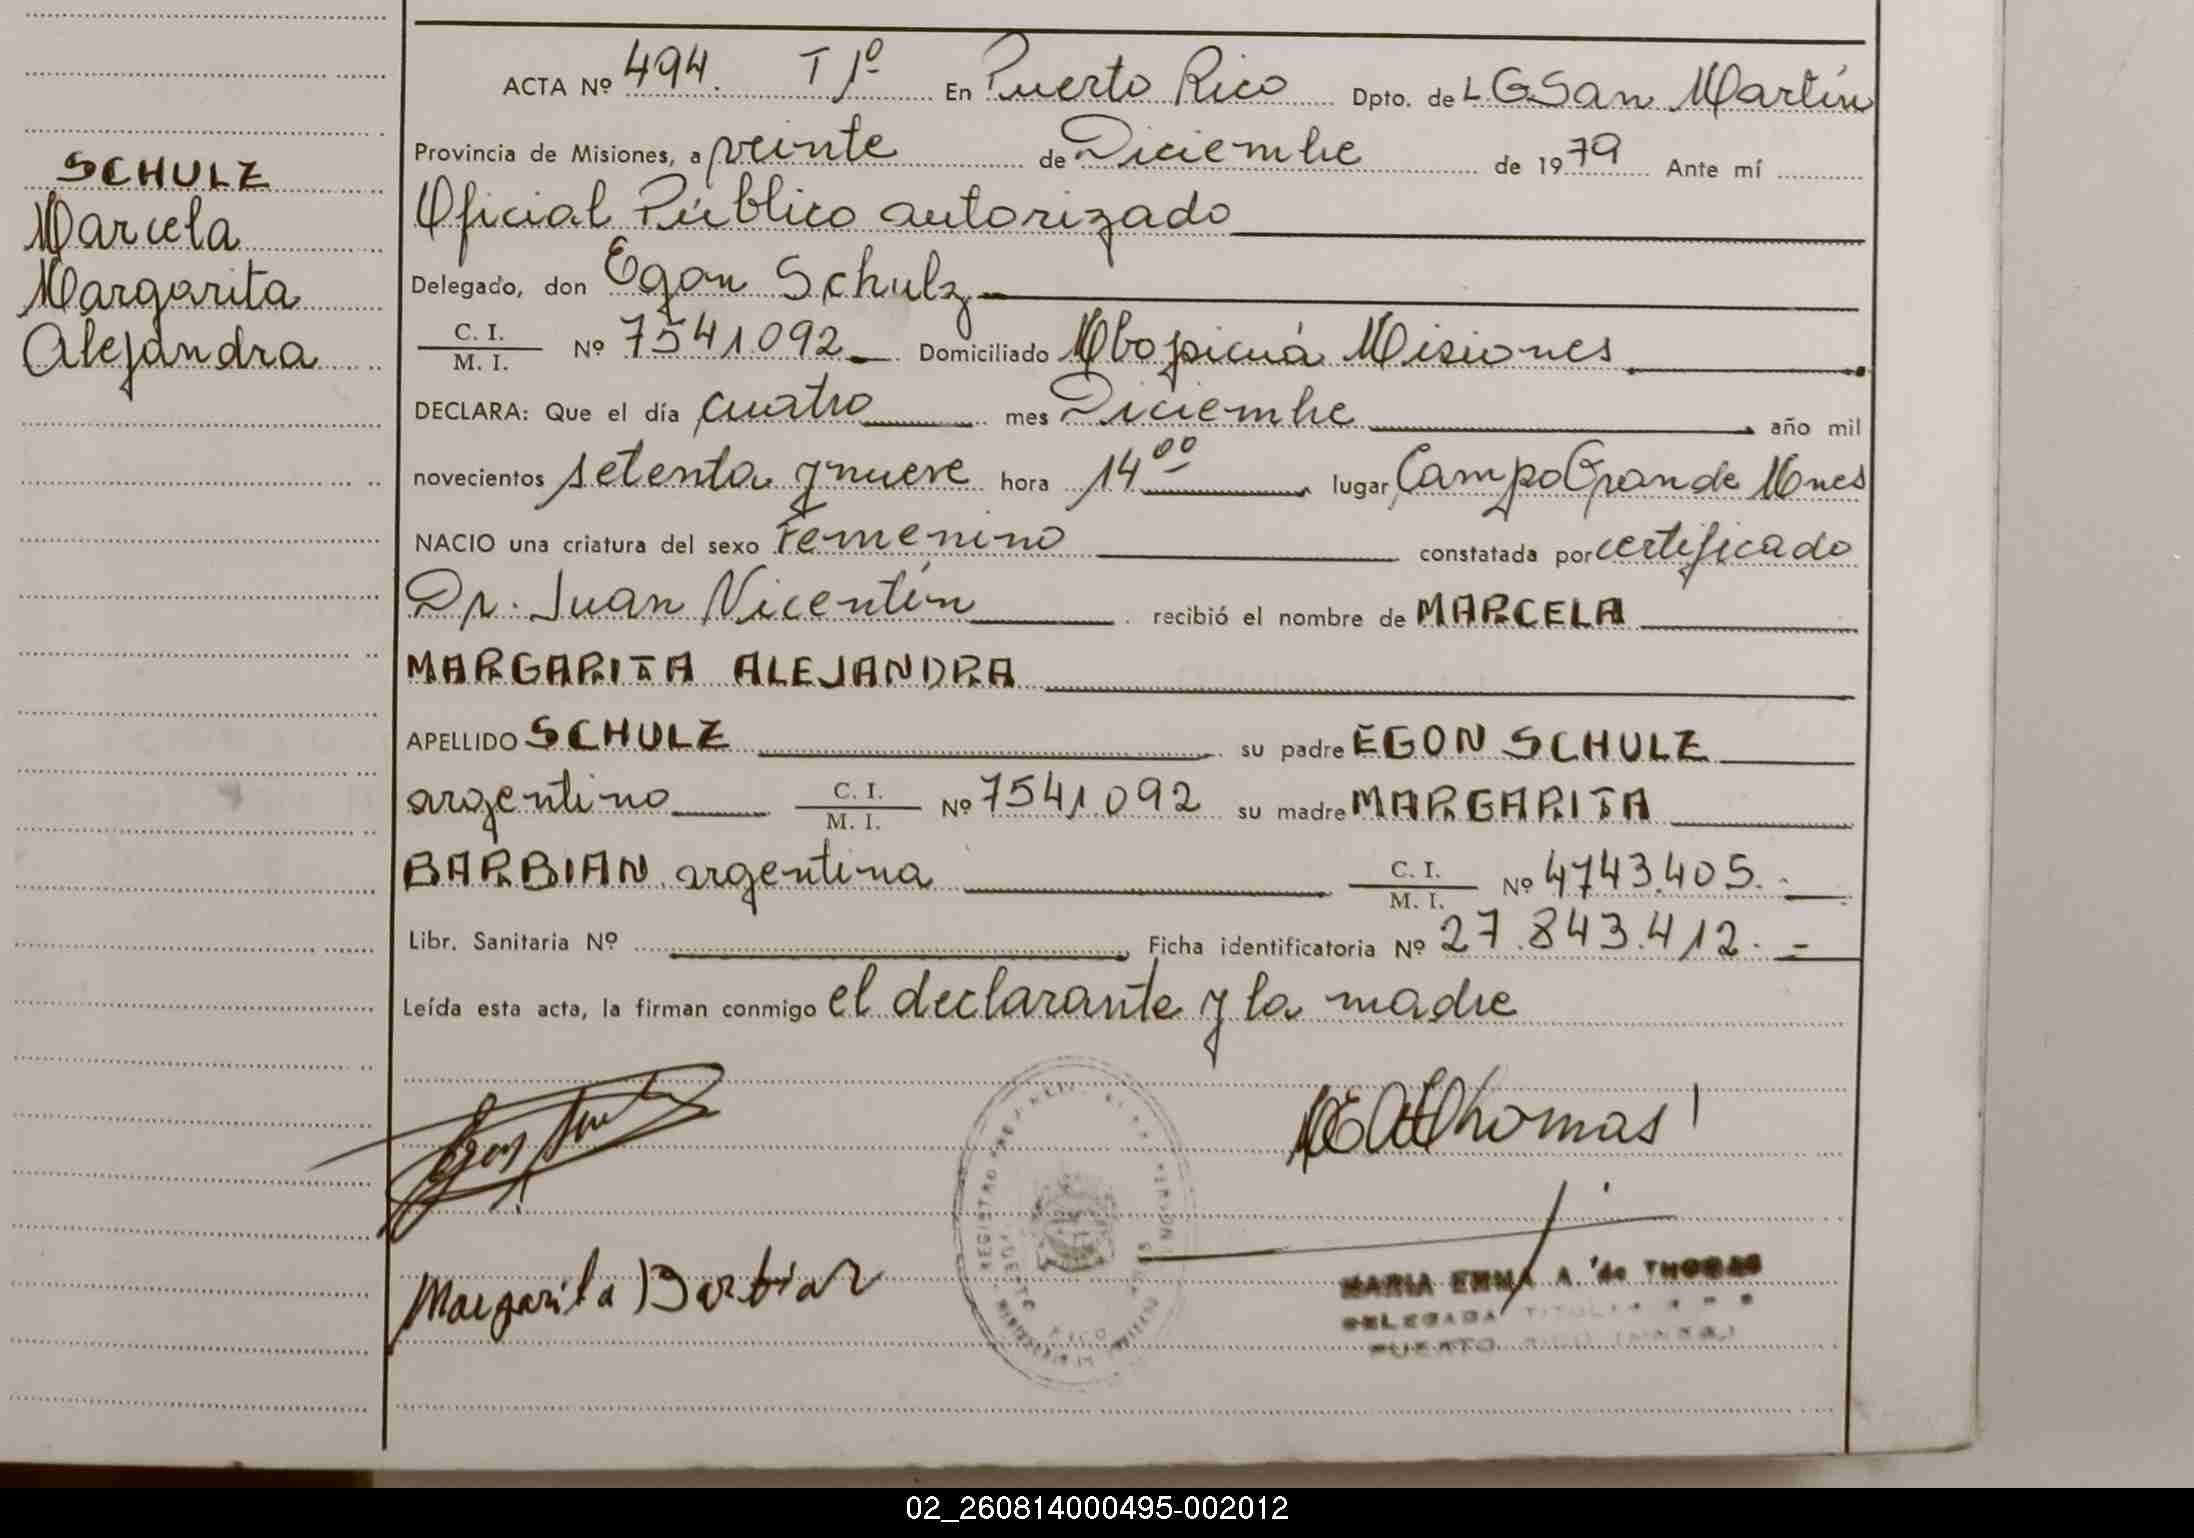 SCHULZ
Marcela
Margarita
Alejandra
ACTA Nº 494. T 1º En Puerto Rico Dpto. de L G San Martín
Provincia de Misiones, a veinte de Diciembre de 1979 Ante mí
Oficial Público autorizado
Delegado, don Egon Schulz
C. I. / M. I. Nº 7541092 Domiciliado Mbopicuá Misiones
DECLARA: Que el día cuatro mes Diciembre año mil
novecientos setenta y nueve hora 14 00 lugar Campo Grande Mnes
NACIO una criatura del sexo Femenino constatada por certificado
Dr. Juan Vicentín recibió el nombre de MARCELA
MARGARITA ALEJANDRA
APELLIDO SCHULZ su padre EGON SCHULZ
argentino C. I. / M. I. Nº 7541.092 su madre MARGARITA
BARBIAN argentina C. I. / M. I. Nº 4743.405.
Libr. Sanitaria Nº Ficha identificatoria Nº 27.843.412.
Leída esta acta, la firman conmigo el declarante y la madre
Thomas
Margarita Barbian
MARIA EMMA A. de THOMAS
DELEGADA TITULAR
PUERTO RICO (MNES.)
02_260814000495-002012